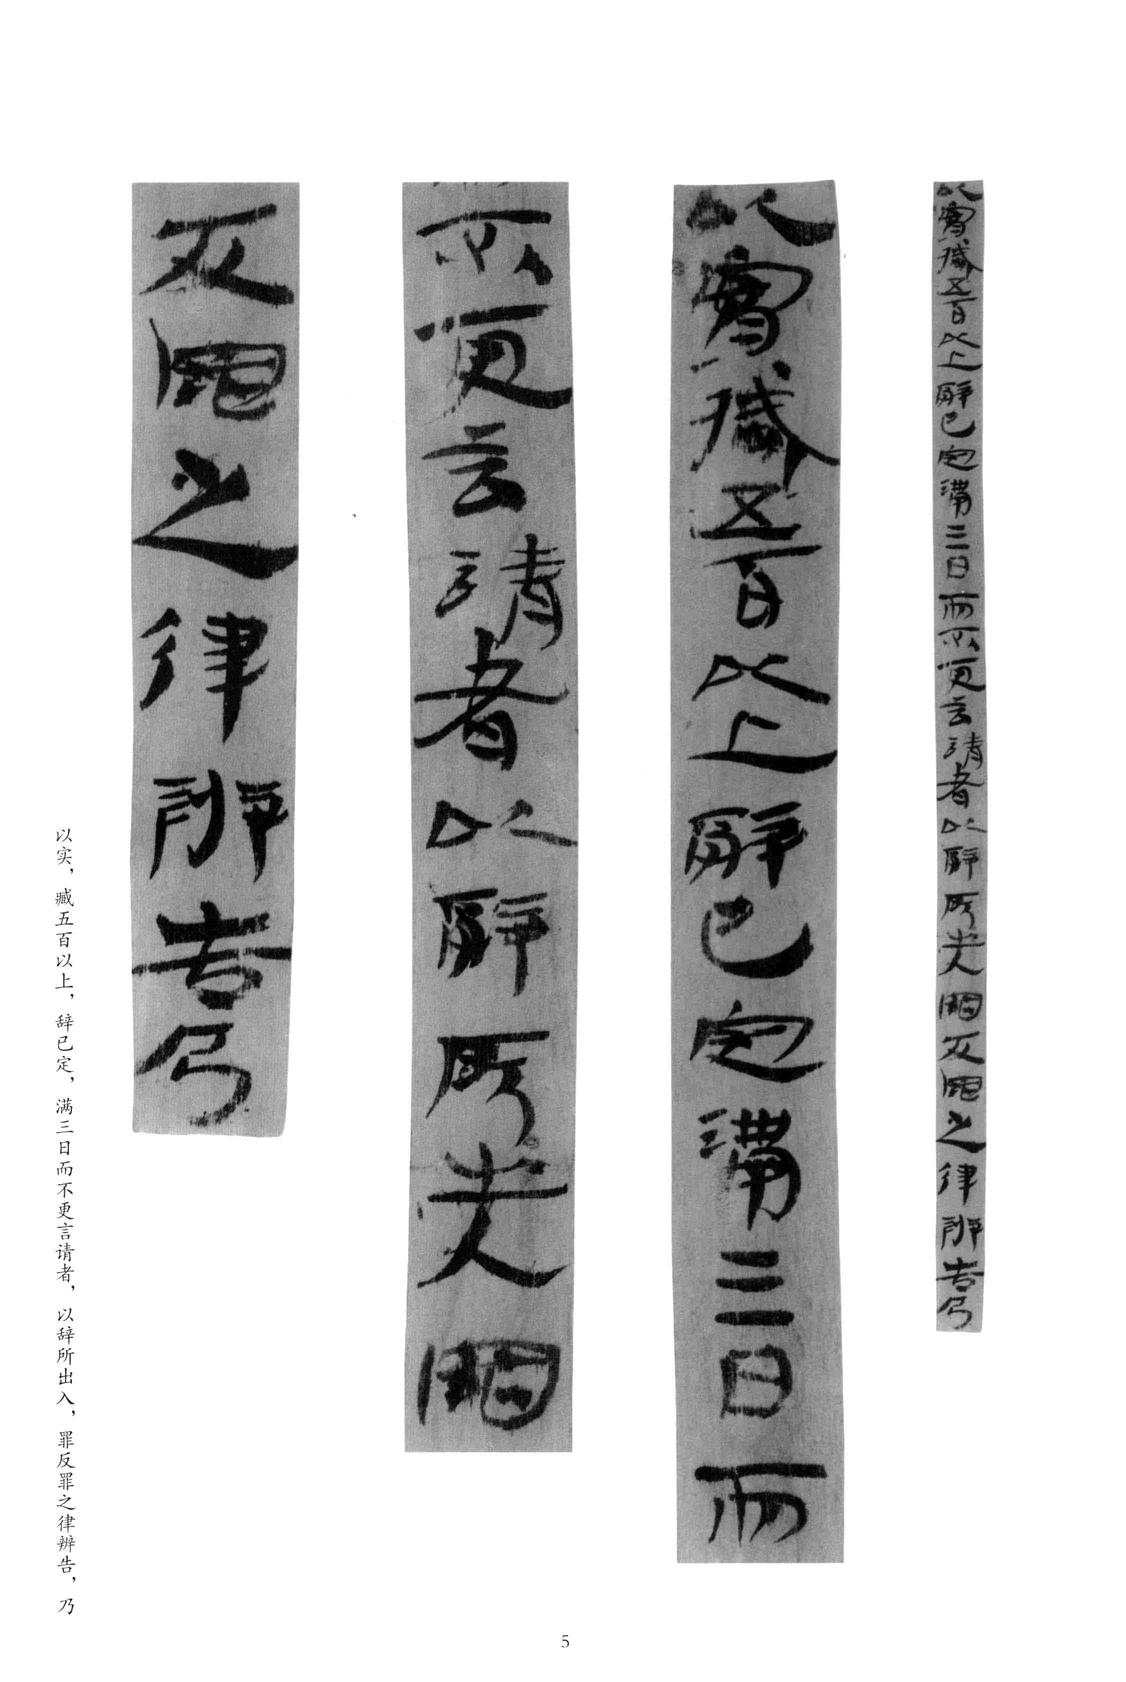 以實臧五百以上辭已定滿三日而不更言請者以辭所出入罪反罪之律辨告乃
以實臧五百以上辭已定滿三日而
不更言請者以辭所出入罪
反罪之律辨告乃
以实，臧五百以上，辞已定，满三日而不更言请者，以辞所出入，罪反罪之律辨告，乃
5